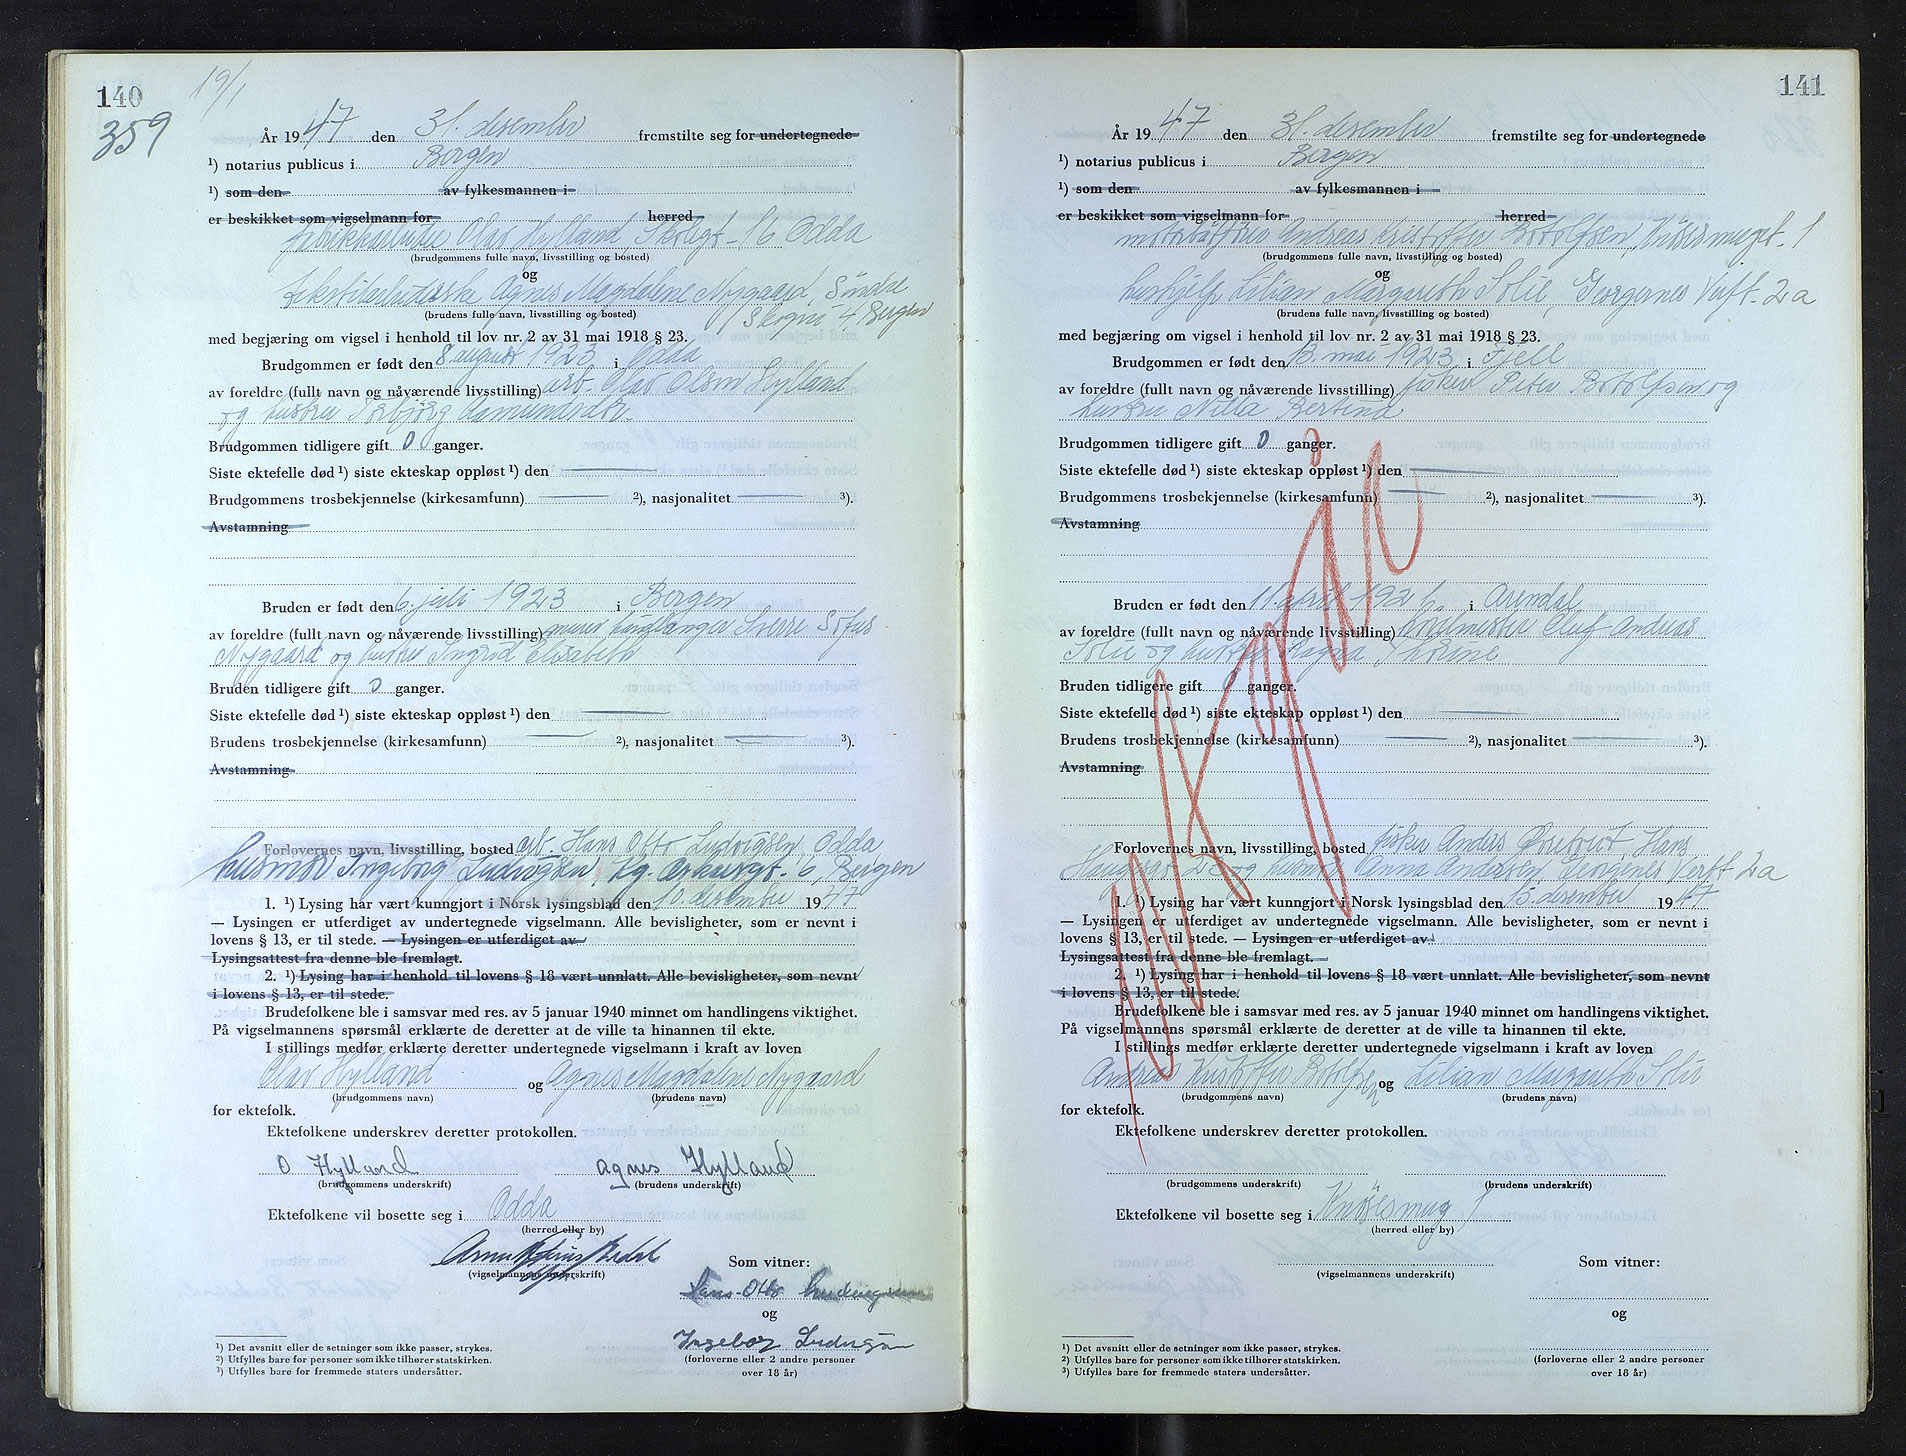 140
19/1
359
År 1947 den 31. desember fremstilte seg for undertegnede
¹) notarius publicus i Bergen
¹) som den av fylkesmannen i
er beskikket som vigselmann for herred
fabrikkarbeider Olav Hylland, 16 Odda
(brudgommens fulle navn, livsstilling og bosted)
og
tekstilarbeiderske Agnes Magdalene Nygaard, Søndre
Skogvei 4, Bergen
(brudens fulle navn, livsstilling og bosted)
med begjæring om vigsel i henhold til lov nr. 2 av 31 mai 1918 § 23.
Brudgommen er født den 8. august 1923 i Odda
av foreldre (fullt navn og nåværende livsstilling) arb. Olav Olsen Hylland
og hustru Torbjørg Aamundsdtr.
Brudgommen tidligere gift 0 ganger.
Siste ektefelle død ¹) siste ekteskap oppløst ¹) den
Brudgommens trosbekjennelse (kirkesamfunn) ²), nasjonalitet ³).
Avstamning
Bruden er født den 6. juli 1923 i Bergen
av foreldre (fullt navn og nåværende livsstilling) murer håndlanger Sverre Sofus
Nygaard og hustru Ingrid Elisabeth
Bruden tidligere gift 0 ganger.
Siste ektefelle død ¹) siste ekteskap oppløst ¹) den
Brudens trosbekjennelse (kirkesamfunn) ²), nasjonalitet ³).
Avstamning
Forlovernes navn, livsstilling, bosted arb. Hans Otto Ludvigsen Odda
husmor Ingeborg Ludvigsen, 6, Bergen
1. ¹) Lysing har vært kunngjort i Norsk lysingsblad den 10. desember 1947
— Lysingen er utferdiget av undertegnede vigselmann. Alle bevisligheter, som er nevnt i
lovens § 13, er til stede. — Lysingen er utferdiget av
Lysingsattest fra denne ble fremlagt.
2. ¹) Lysing har i henhold til lovens § 18 vært unnlatt. Alle bevisligheter, som nevnt
i lovens § 13, er til stede.
Brudefolkene ble i samsvar med res. av 5 januar 1940 minnet om handlingens viktighet.
På vigselmannens spørsmål erklærte de deretter at de ville ta hinannen til ekte.
I stillings medfør erklærte deretter undertegnede vigselmann i kraft av loven
Olav Hylland og Agnes Magdalene Nygaard
(brudgommens navn) (brudens navn)
for ektefolk.
Ektefolkene underskrev deretter protokollen.
O Hylland Agnes Hylland
(brudgommens underskrift) (brudens underskrift)
Ektefolkene vil bosette seg i Odda
(herred eller by)
(vigselmannens underskrift)
Som vitner:
Hans Otto Ludvigsen
og
Ingeborg Ludvigsen
(forloverne eller 2 andre personer
over 18 år)
¹) Det avsnitt eller de setninger som ikke passer, strykes.
²) Utfylles bare for personer som ikke tilhører statskirken.
³) Utfylles bare for fremmede staters undersåtter.
141
År 1947 den 31. desember fremstilte seg for undertegnede
¹) notarius publicus i Bergen
¹) som den av fylkesmannen i
er beskikket som vigselmann for herred
Andreas Kristoffer Botolfsen, Knøsesmuget. 1
(brudgommens fulle navn, livsstilling og bosted)
og
hushjelp Lilian Margareth Solie, Georgernes Verft. 2a
(brudens fulle navn, livsstilling og bosted)
med begjæring om vigsel i henhold til lov nr. 2 av 31 mai 1918 § 23.
Brudgommen er født den 13. mai 1923 i Fjell
av foreldre (fullt navn og nåværende livsstilling) fisker Peter Botolfsen og
hustru Nilla Bertina
Brudgommen tidligere gift 0 ganger.
Siste ektefelle død ¹) siste ekteskap oppløst ¹) den
Brudgommens trosbekjennelse (kirkesamfunn) ²), nasjonalitet ³).
Avstamning
Ugyldig
Bruden er født den 11. april 1926. i Arendal
av foreldre (fullt navn og nåværende livsstilling) Oluf Andreas
Solie og hustru Ragna
Bruden tidligere gift 0 ganger.
Siste ektefelle død ¹) siste ekteskap oppløst ¹) den
Brudens trosbekjennelse (kirkesamfunn) ²), nasjonalitet ³).
Avstamning
Forlovernes navn, livsstilling, bosted fisker Anders Hans
Haugesgt 23 og husmor Anna Andersen, Georgenes Verft 2a
1. ¹) Lysing har vært kunngjort i Norsk lysingsblad den 15. desember 1947
— Lysingen er utferdiget av undertegnede vigselmann. Alle bevisligheter, som er nevnt i
lovens § 13, er til stede. — Lysingen er utferdiget av
Lysingsattest fra denne ble fremlagt.
2. ¹) Lysing har i henhold til lovens § 18 vært unnlatt. Alle bevisligheter, som nevnt
i lovens § 13, er til stede.
Brudefolkene ble i samsvar med res. av 5 januar 1940 minnet om handlingens viktighet.
På vigselmannens spørsmål erklærte de deretter at de ville ta hinannen til ekte.
I stillings medfør erklærte deretter undertegnede vigselmann i kraft av loven
Andreas Kristoffer Botolfsen og Lilian Margareth Solie
(brudgommens navn) (brudens navn)
for ektefolk.
Ektefolkene underskrev deretter protokollen.
(brudgommens underskrift) (brudens underskrift)
Ektefolkene vil bosette seg i Knøsesmug 1
(herred eller by)
(vigselmannens underskrift)
Som vitner:
og
(forloverne eller 2 andre personer
over 18 år)
¹) Det avsnitt eller de setninger som ikke passer, strykes.
²) Utfylles bare for personer som ikke tilhører statskirken.
³) Utfylles bare for fremmede staters undersåtter.